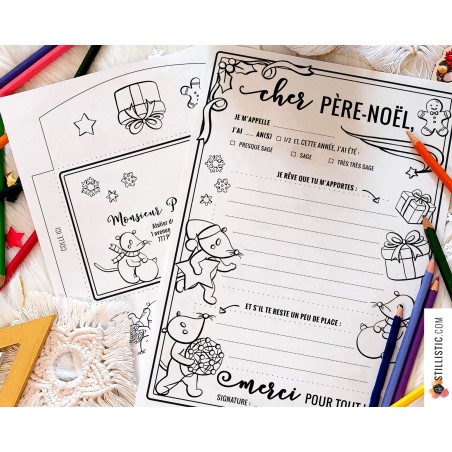 cher PÈRE-NOËL,
JE M'APPELLE
J'AI ... AN(S) □ 1/2 ET, CETTE ANNÉE, J'AI ÉTÉ :
□ PRESQUE SAGE □ SAGE □ TRÈS TRÈS SAGE
JE RÊVE QUE TU M'APPORTES :
ET S'IL TE RESTE UN PEU DE PLACE :
merci POUR TOUT !
SIGNATURE :
Monsieur P
Atelier du
1 avenue
COLLE ICI
STILLISTIC.COM